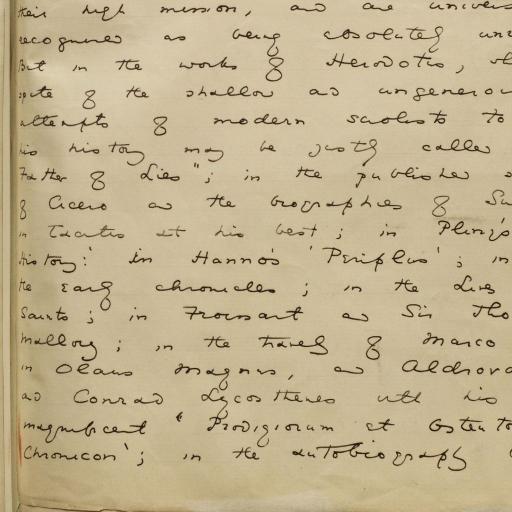 their high mission, and are univers
recognised as being absolutely un
But in the works of Herodotus, 
spite of the shallow and ungenerou
attempts of modern sciolists to
his history may be justly called
Father of Lies"; in the published
of Cicero and the biographies of Su
in Tacitus at his best; in Pliny's
History': in Hanno's 'Periplus'; in
the early chronicles; in the Lives
Saints; in Froissart and Sir Tho
Mallory; in the travels of Marco
in Olaus Magnus, and Aldrova
and Conrad Lycosthenes with his
magnificent 'Prodigiorum et Ostento
Chronicon'; in the autobiography